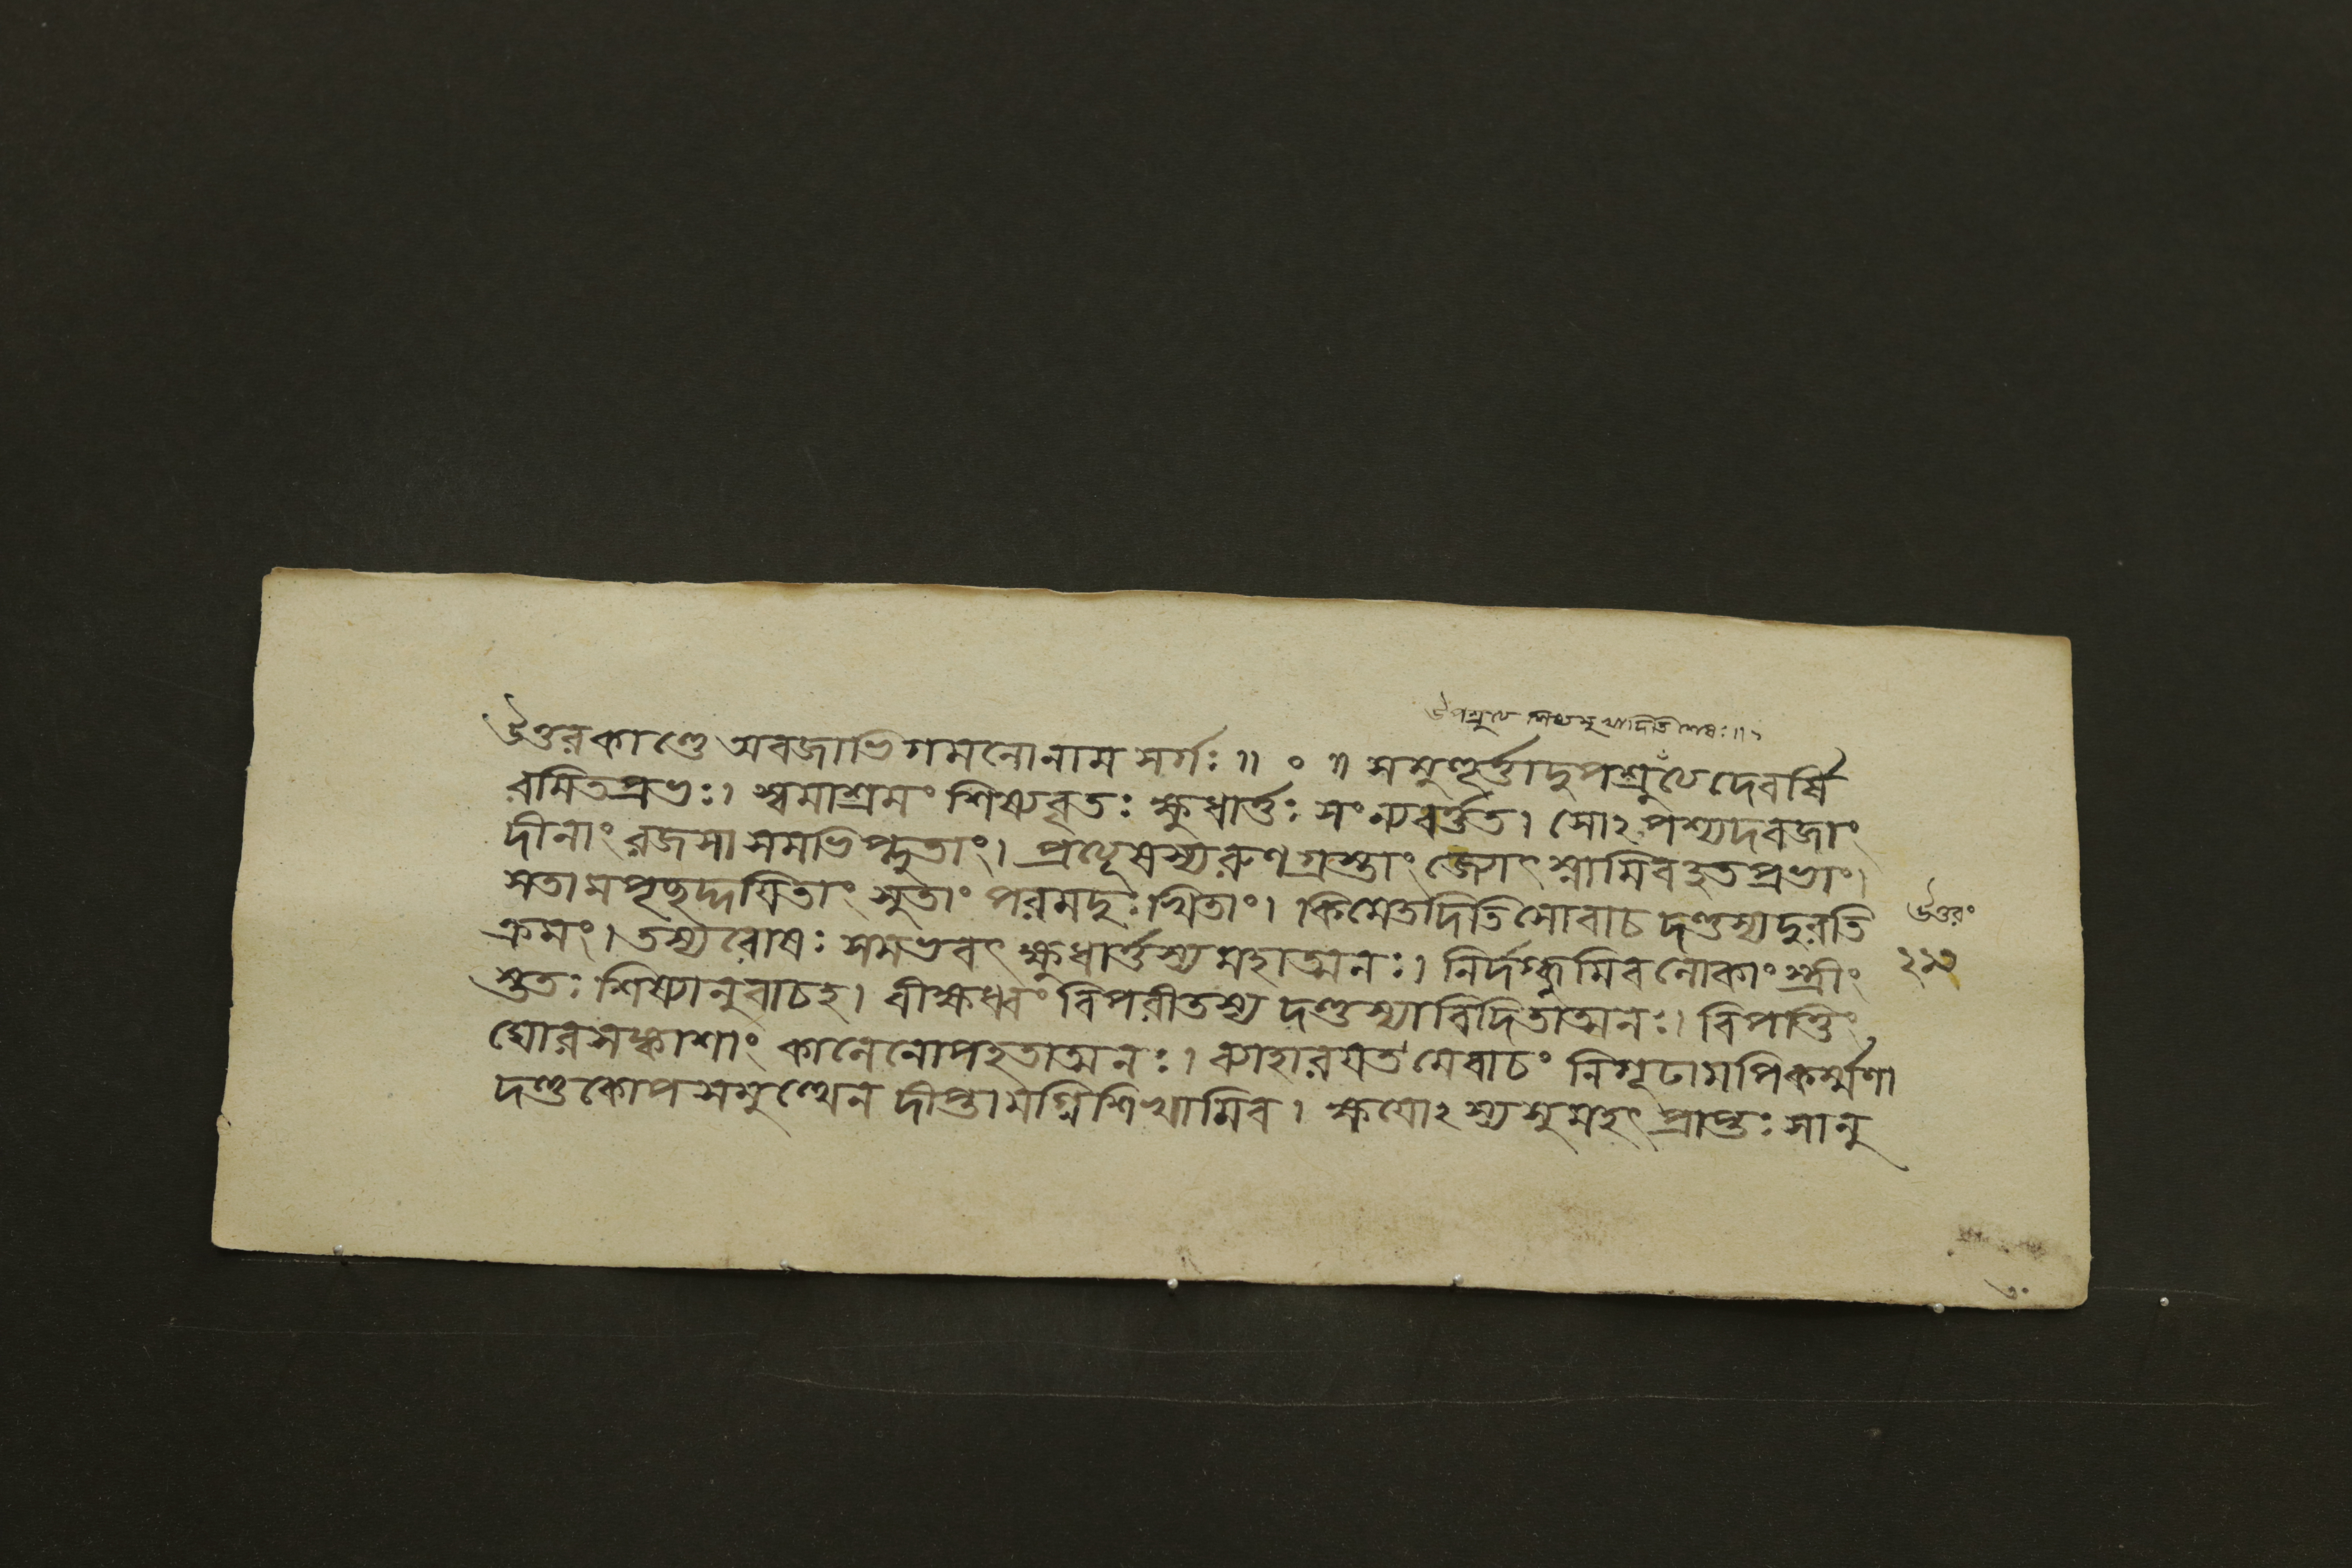 উপশ্রুত্য শিষ্যমুখাদিতি শেষঃ॥
উত্তরকাণ্ডে অবজাভিগমনোনাম সর্গঃ॥ ০ ॥ সমুহূর্ত্তাদুপশ্রুত্যদেবর্ষি
রমিতপ্রভঃ। স্বমাশ্রমং শিষ্যবৃতঃ ক্ষুধার্ত্তঃ সংন্যবর্ত্তত। সোঽপশ্যদবজাং
দীনাং রজসা সমভিপ্লুতাং। প্রত্যূষস্যরুণগ্রস্তাং জ্যোৎস্নামিবহতপ্রভাং।
সতামপৃছদ্দয়িতাং সুতাং পরমদুঃখিতাং। কিমেতদিতিসোবাচ দণ্ডস্যদুরতি
ক্রমং। তস্যরোষঃ সমভবৎ ক্ষুধার্ত্তস্যমহাত্মনঃ। নির্দগ্ধুমিবলোকাং স্ত্রীং
স্তুতঃ শিষ্যানুবাচহ। বীক্ষধ্বং বিপরীতস্য দণ্ডস্যাবিদিতাত্মনঃ। বিপত্তিং
ঘোরসঙ্কাশাং কালেনোপহতাত্মনঃ। ব্যাহারয়ত মেবাচং নিগূঢামপিকর্ম্মণা
দণ্ডকোপসমুত্থেন দীপ্তামগ্নিশিখামিব। ক্ষয়োঽস্যসুমহৎ প্রাপ্তঃ সানু
উত্তরং